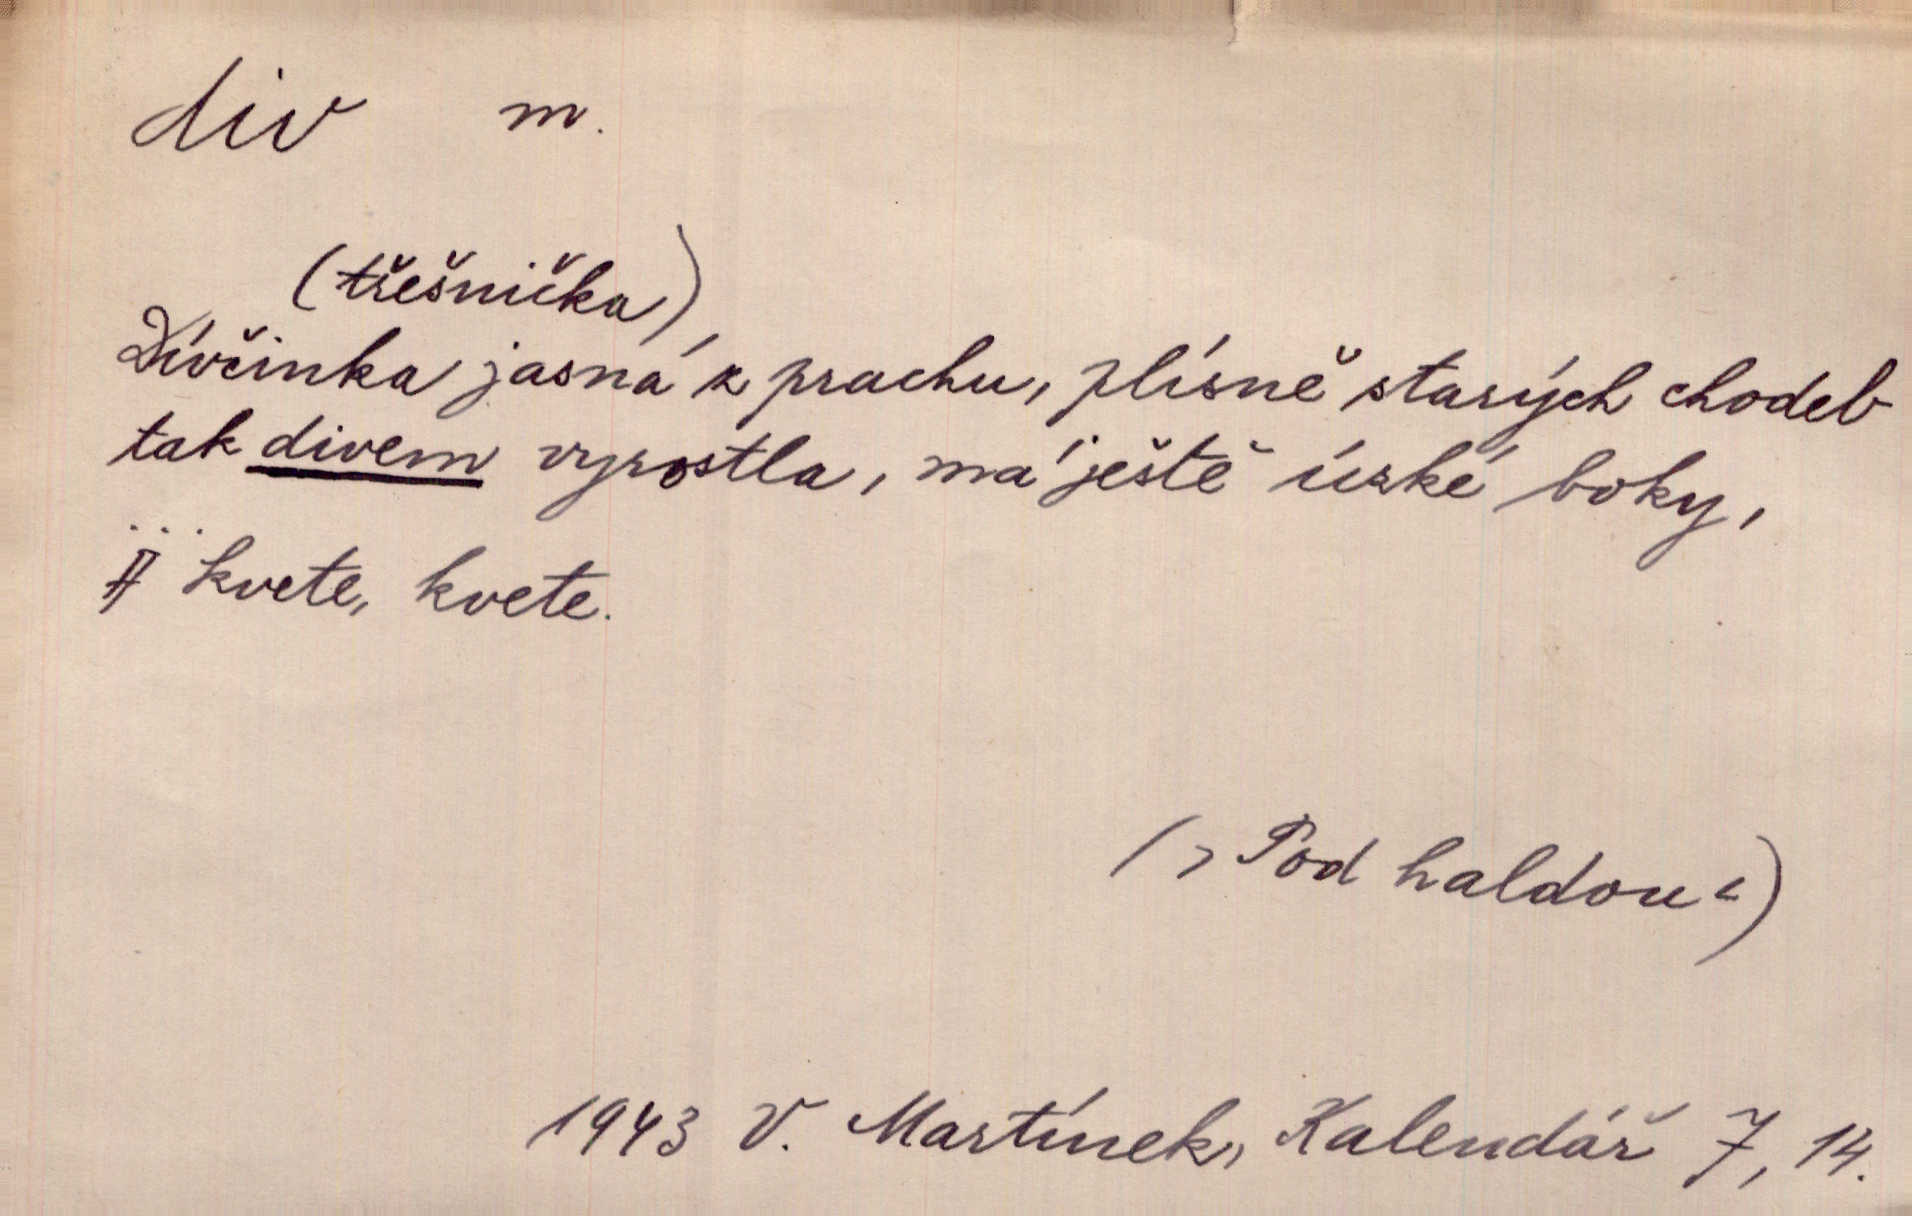 div m.
(třešnička)
Dívčinka jasná z prachu, plísně starých chodeb
tak divem vyrostla, má ještě úzké boky,
...
A kvete, kvete.
(„Pod haldou“)
1943 V. Martínek, Kalendář 7, 14.